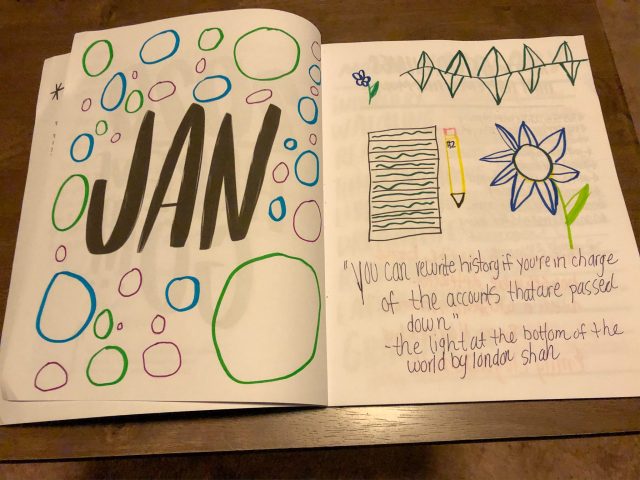 JAN
#2
"you can rewrite history if you're in charge
of the accounts that are passed
down"
-the light at the bottom of the
world by london shah